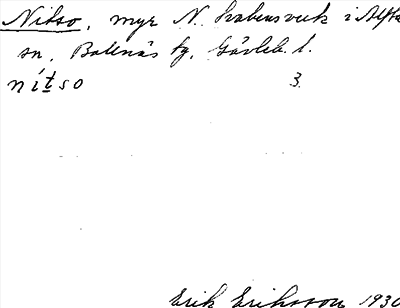 Nitso, myr N. Svabensverk i Alfta
sn, Bollnäs tg, Gävleb. l.
nítso 3.
Erik Eriksson 1930